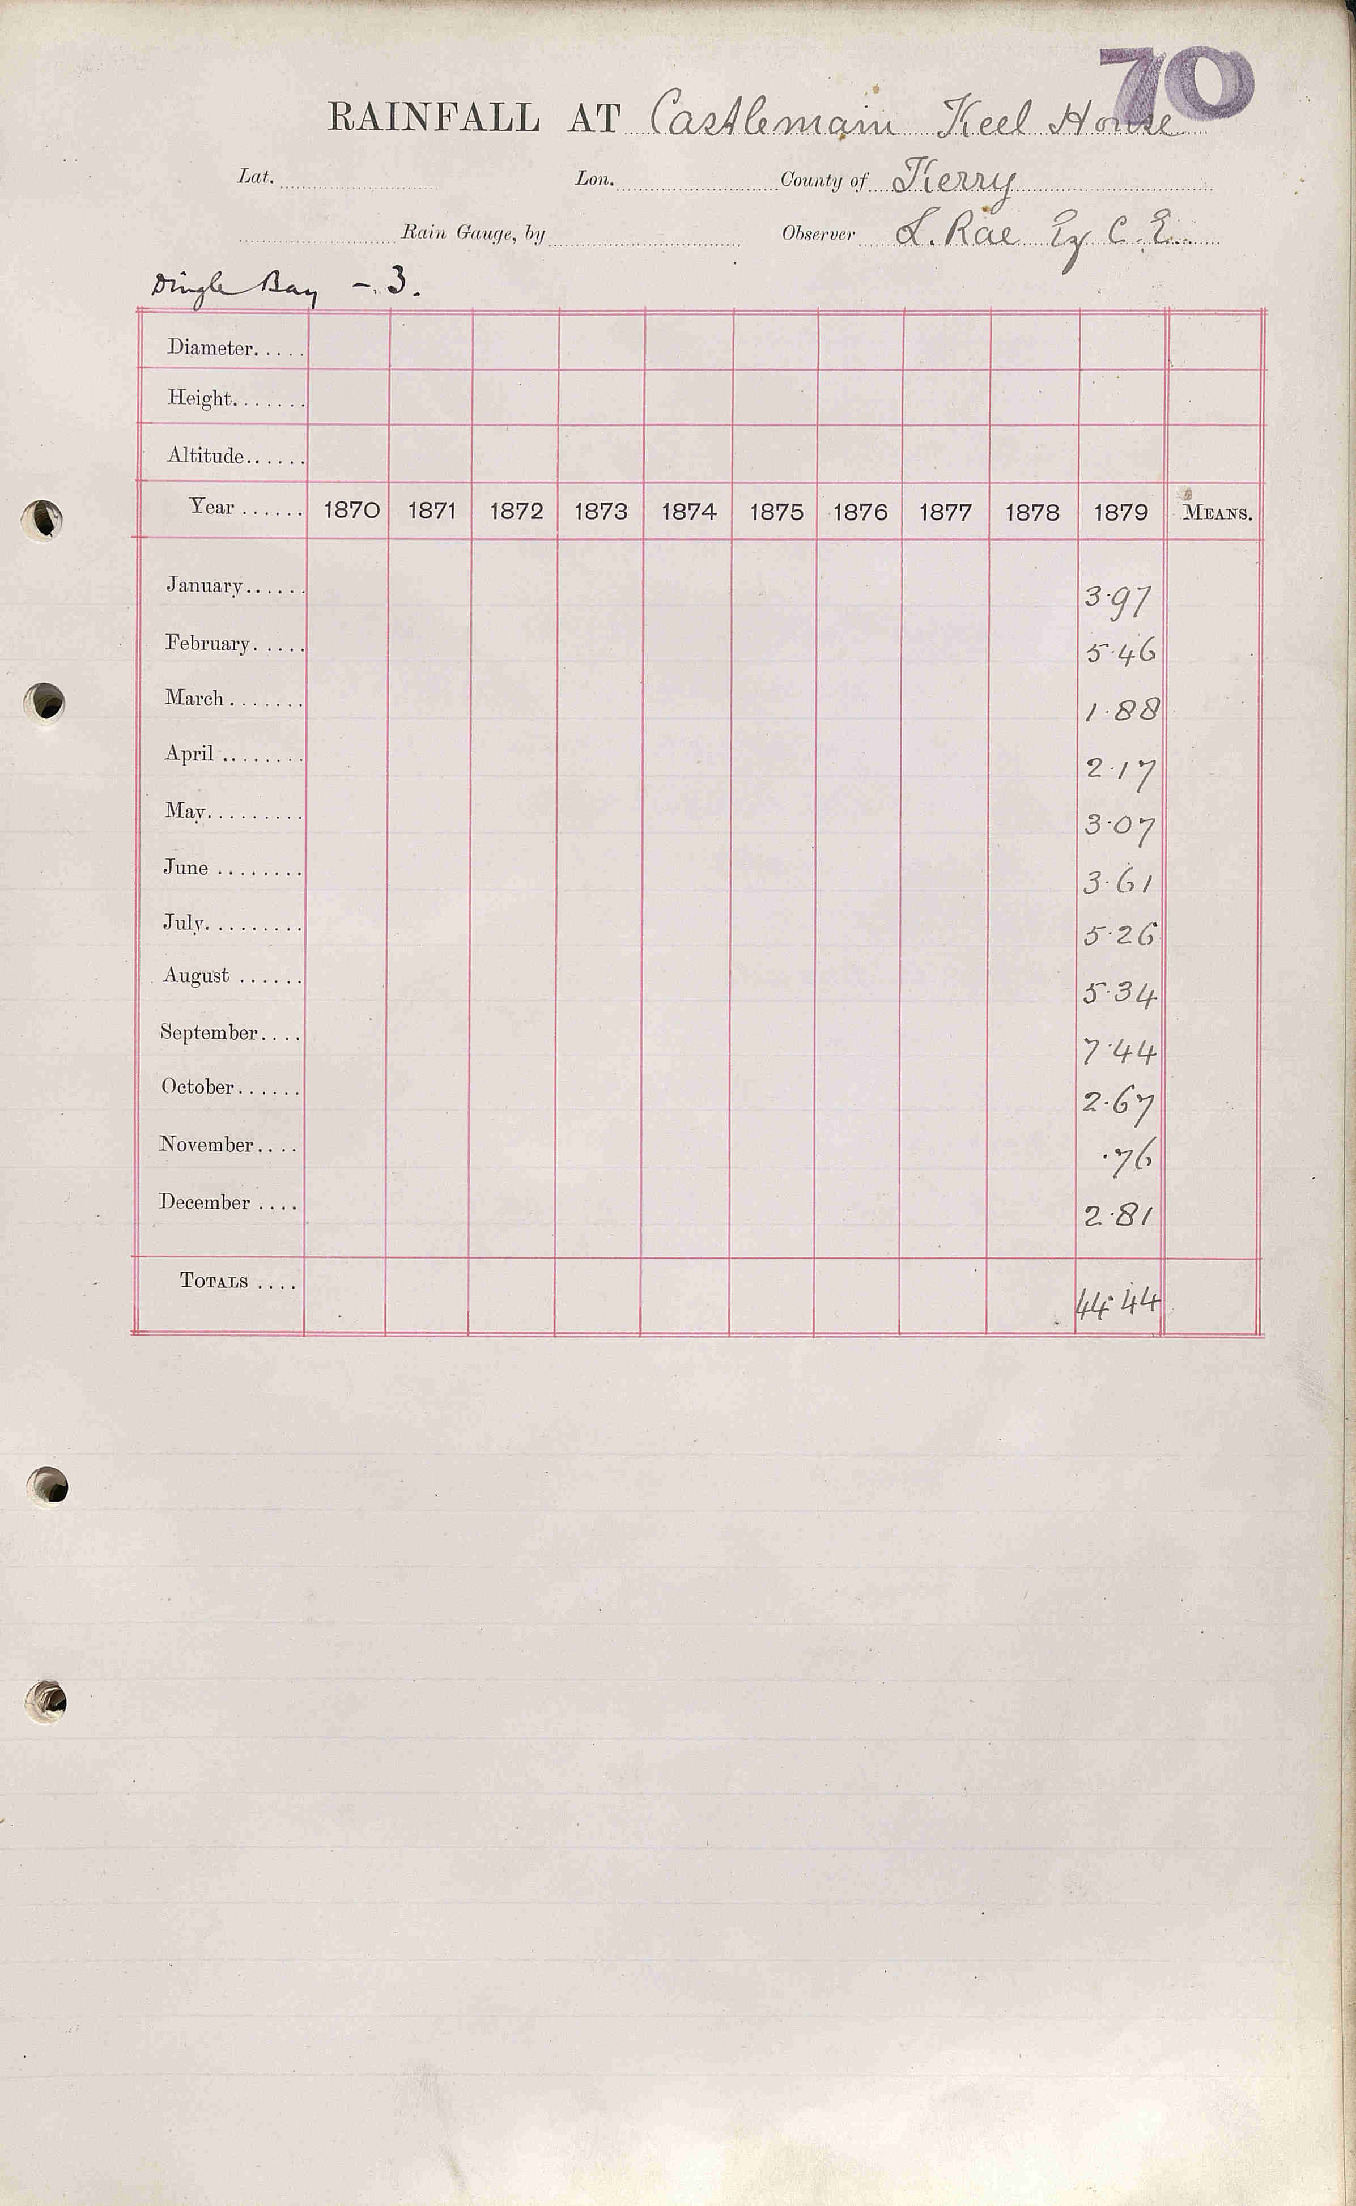 70
RAINFALL AT Castlemain Keel House
Lat. Lon. County of Kerry
Rain Gauge, by Observer L. Rae Esq C. E.
Dingle Bay - 3.
Diameter.....
Height.......
Altitude......
Year ...... 1870 1871 1872 1873 1874 1875 1876 1877 1878 1879 MEANS.
January...... 3.97
February..... 5.46
March....... 1.88
April ........ 2.17
May......... 3.07
June ........ 3.61
July......... 5.26
August ...... 5.34
September.... 7.44
October...... 2.67
November.... .76
December .... 2.81
TOTALS .... 44.44